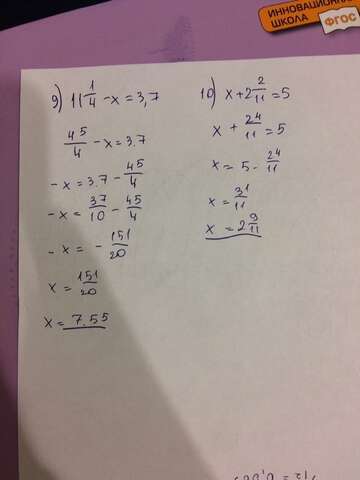 ИННОВАЦИОННАЯ
ШКОЛА
ФГОС
9) 11 1/4 - x = 3,7
45/4 - x = 3.7
- x = 3.7 - 45/4
- x = 37/10 - 45/4
- x = - 151/20
x = 151/20
x = 7.55
10) x + 2 2/11 = 5
x + 24/11 = 5
x = 5 - 24/11
x = 31/11
x = 2 9/11